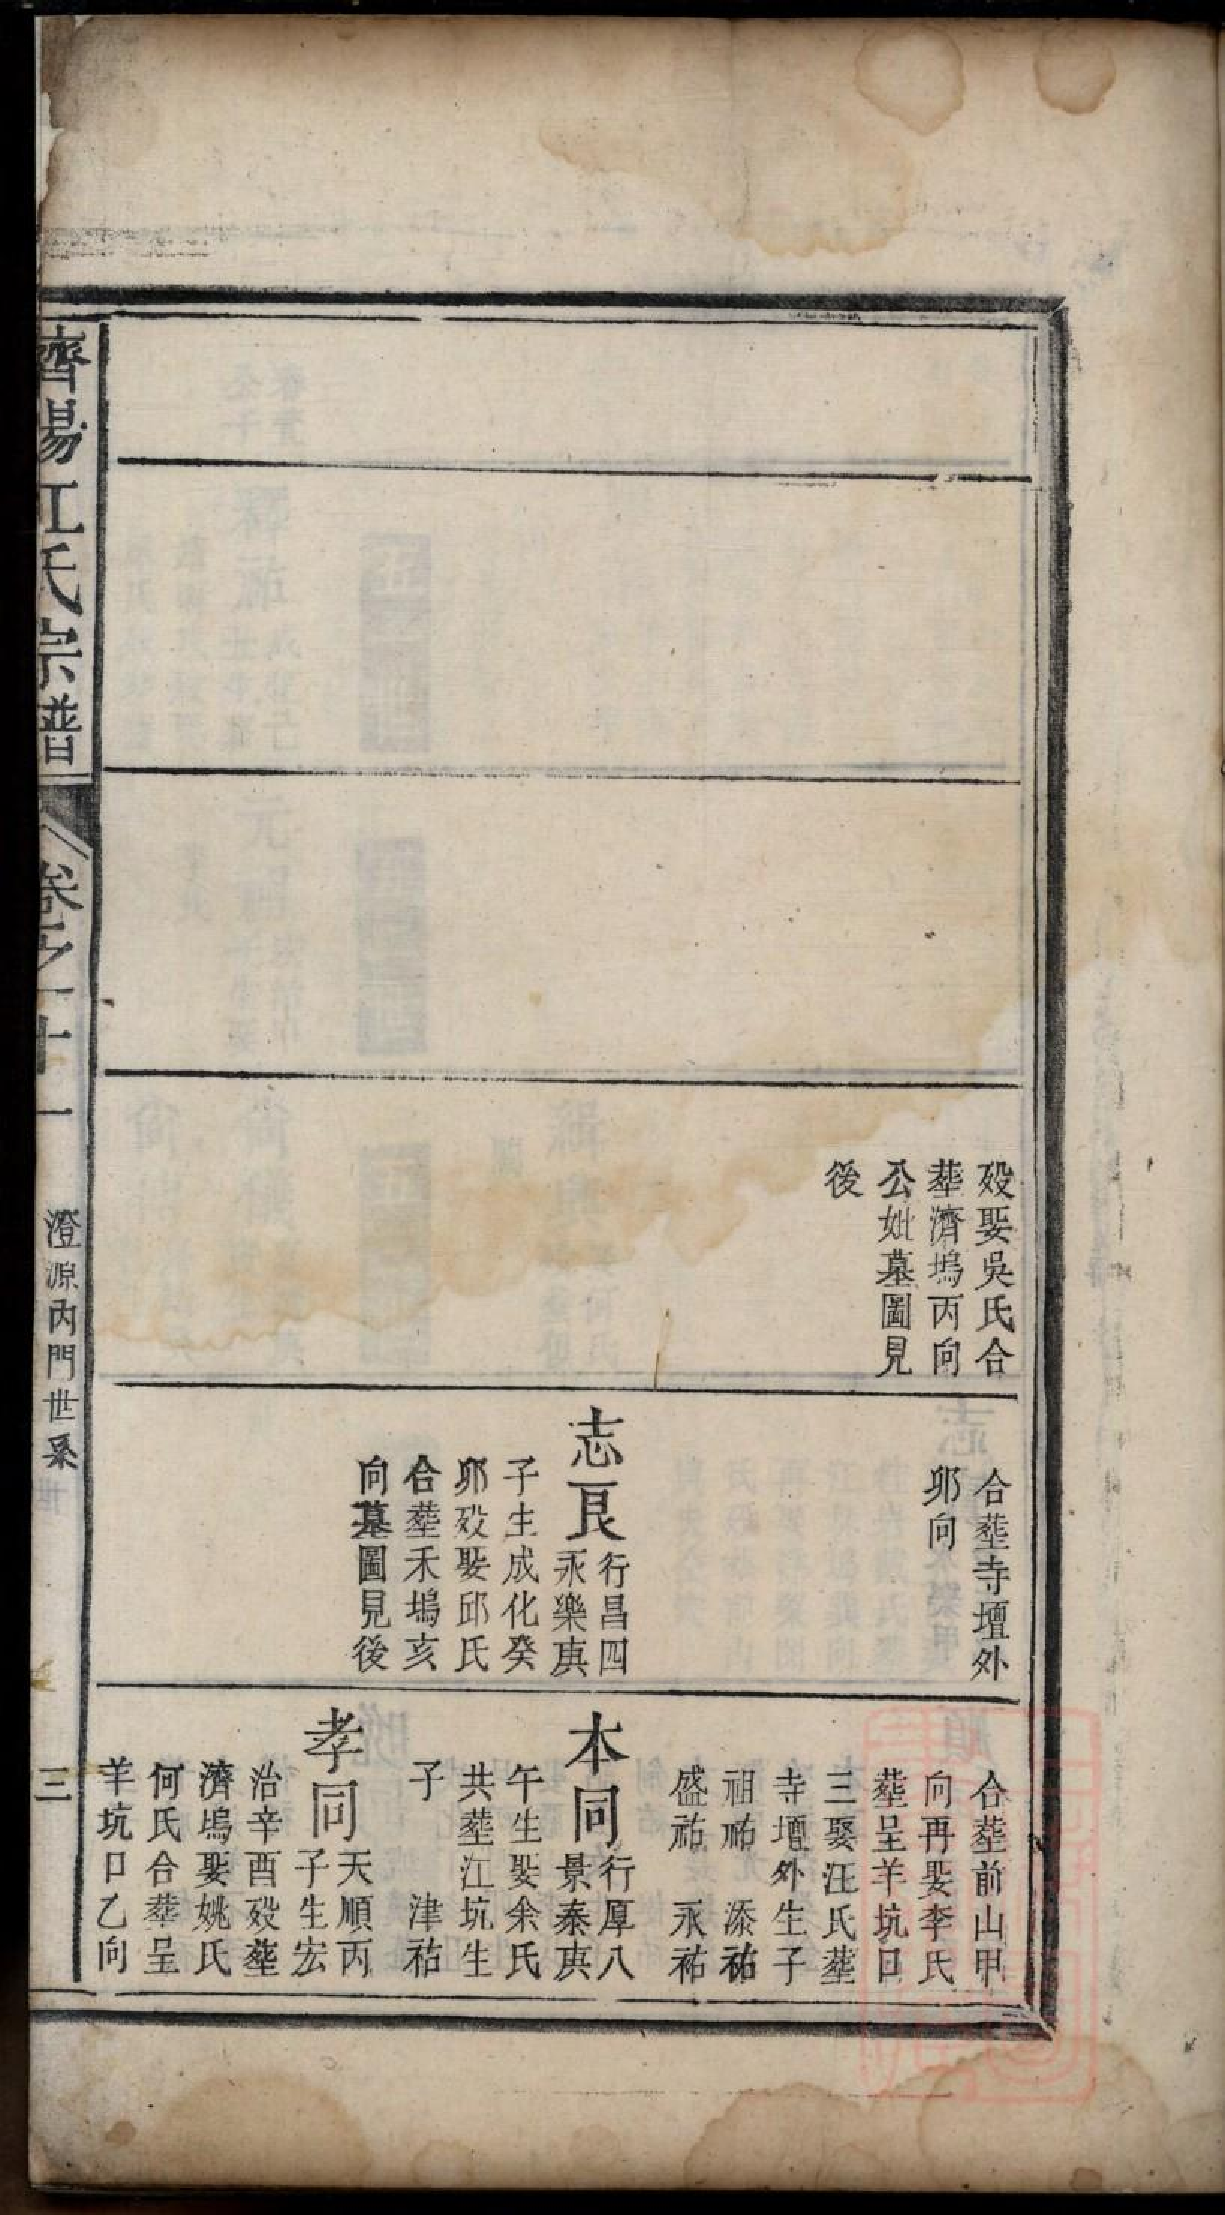 歿娶吳氏合
塟濟塢丙向
公妣墓圖見
後
合塟寺壇外
卯向
志良
行昌四
永樂庚
子生成化癸
卯歿娶邱氏
合塟禾塢亥
向墓圖見後
合塟前山甲
向再娶李氏
塟呈羊坑口
三娶汪氏塟
寺壇外生子
祖祐　添祐
盛祐　永祐
本同
行厚八
景泰庚
午生娶余氏
共塟江坑生
子　津祐
孝同
天順丙
子生宏
治辛酉歿塟
濟塢娶姚氏
何氏合塟呈
羊坑口乙向
濟陽江氏宗譜
卷之十一
澄源內門世系
三